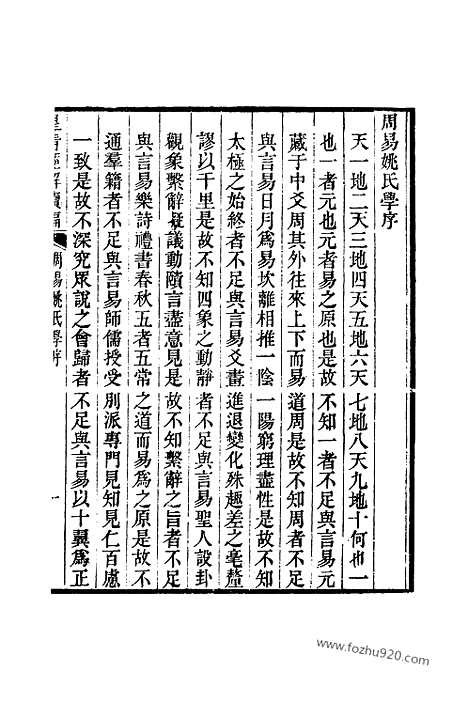 周易姚氏學序
天一地二天三地四天五地六天七地八天九地十何也一
也一者元也元者易之原也是故不知一者不足與言易元
藏于中爻周其外往來上下而易道周是故不知周者不足
與言易日月爲易坎離相推一陰一陽窮理盡性是故不知
太極之始終者不足與言易爻畫進退變化殊趣差之毫釐
謬以千里是故不知四象之動靜者不足與言易聖人設卦
觀象繫辭疑議動賾言盡意見是故不知繫辭之旨者不足
與言易樂詩禮書春秋五者五常之道而易爲之原是故不
通羣籍者不足與言易師儒授受別派專門見知見仁百慮
一致是故不深究眾說之會歸者不足與言易以十翼爲正
皇清經解續編
周易姚氏學序
一
www.fozhu920.com